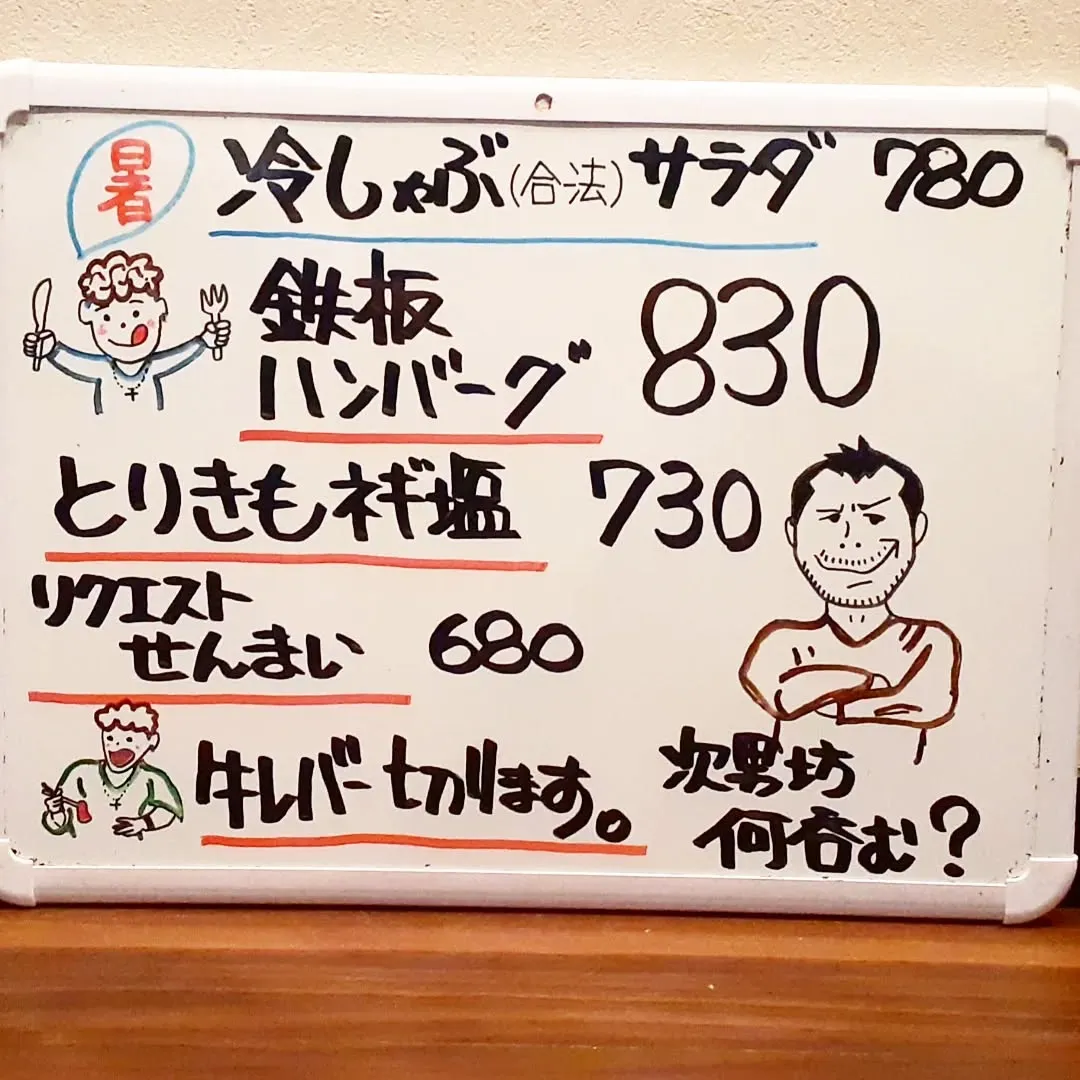 暑
冷しゃぶ(合法)サラダ 780
鉄板
ハンバーグ 830
とりきもネギ塩 730
リクエスト
せんまい 680
牛レバー切ります。
次男坊
何呑む?